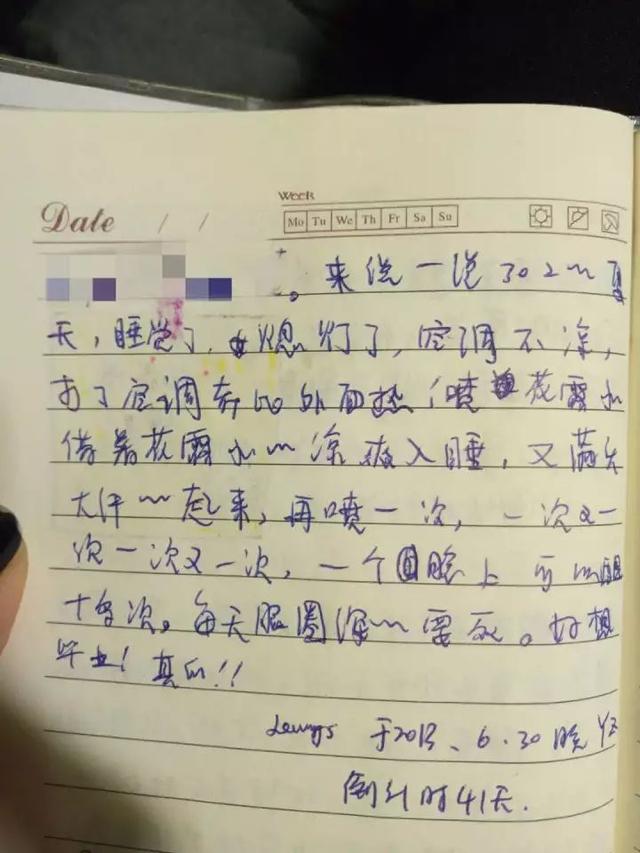 Week
Date / /
Mo Tu We Th Fr Sa Su
。来说一说302的夏
天,睡觉了,熄灯了,空调不凉,
开了空调奔的外面热(喷花露水
借着花露水的凉爽入睡,又满头
大汗的起来,再喷一次,一次又一
次一次又一次,一个晚上可以
十多次。每天眼圈深的要死。好想
毕业!真的!!
于2013、6.30晚
倒计时41天.